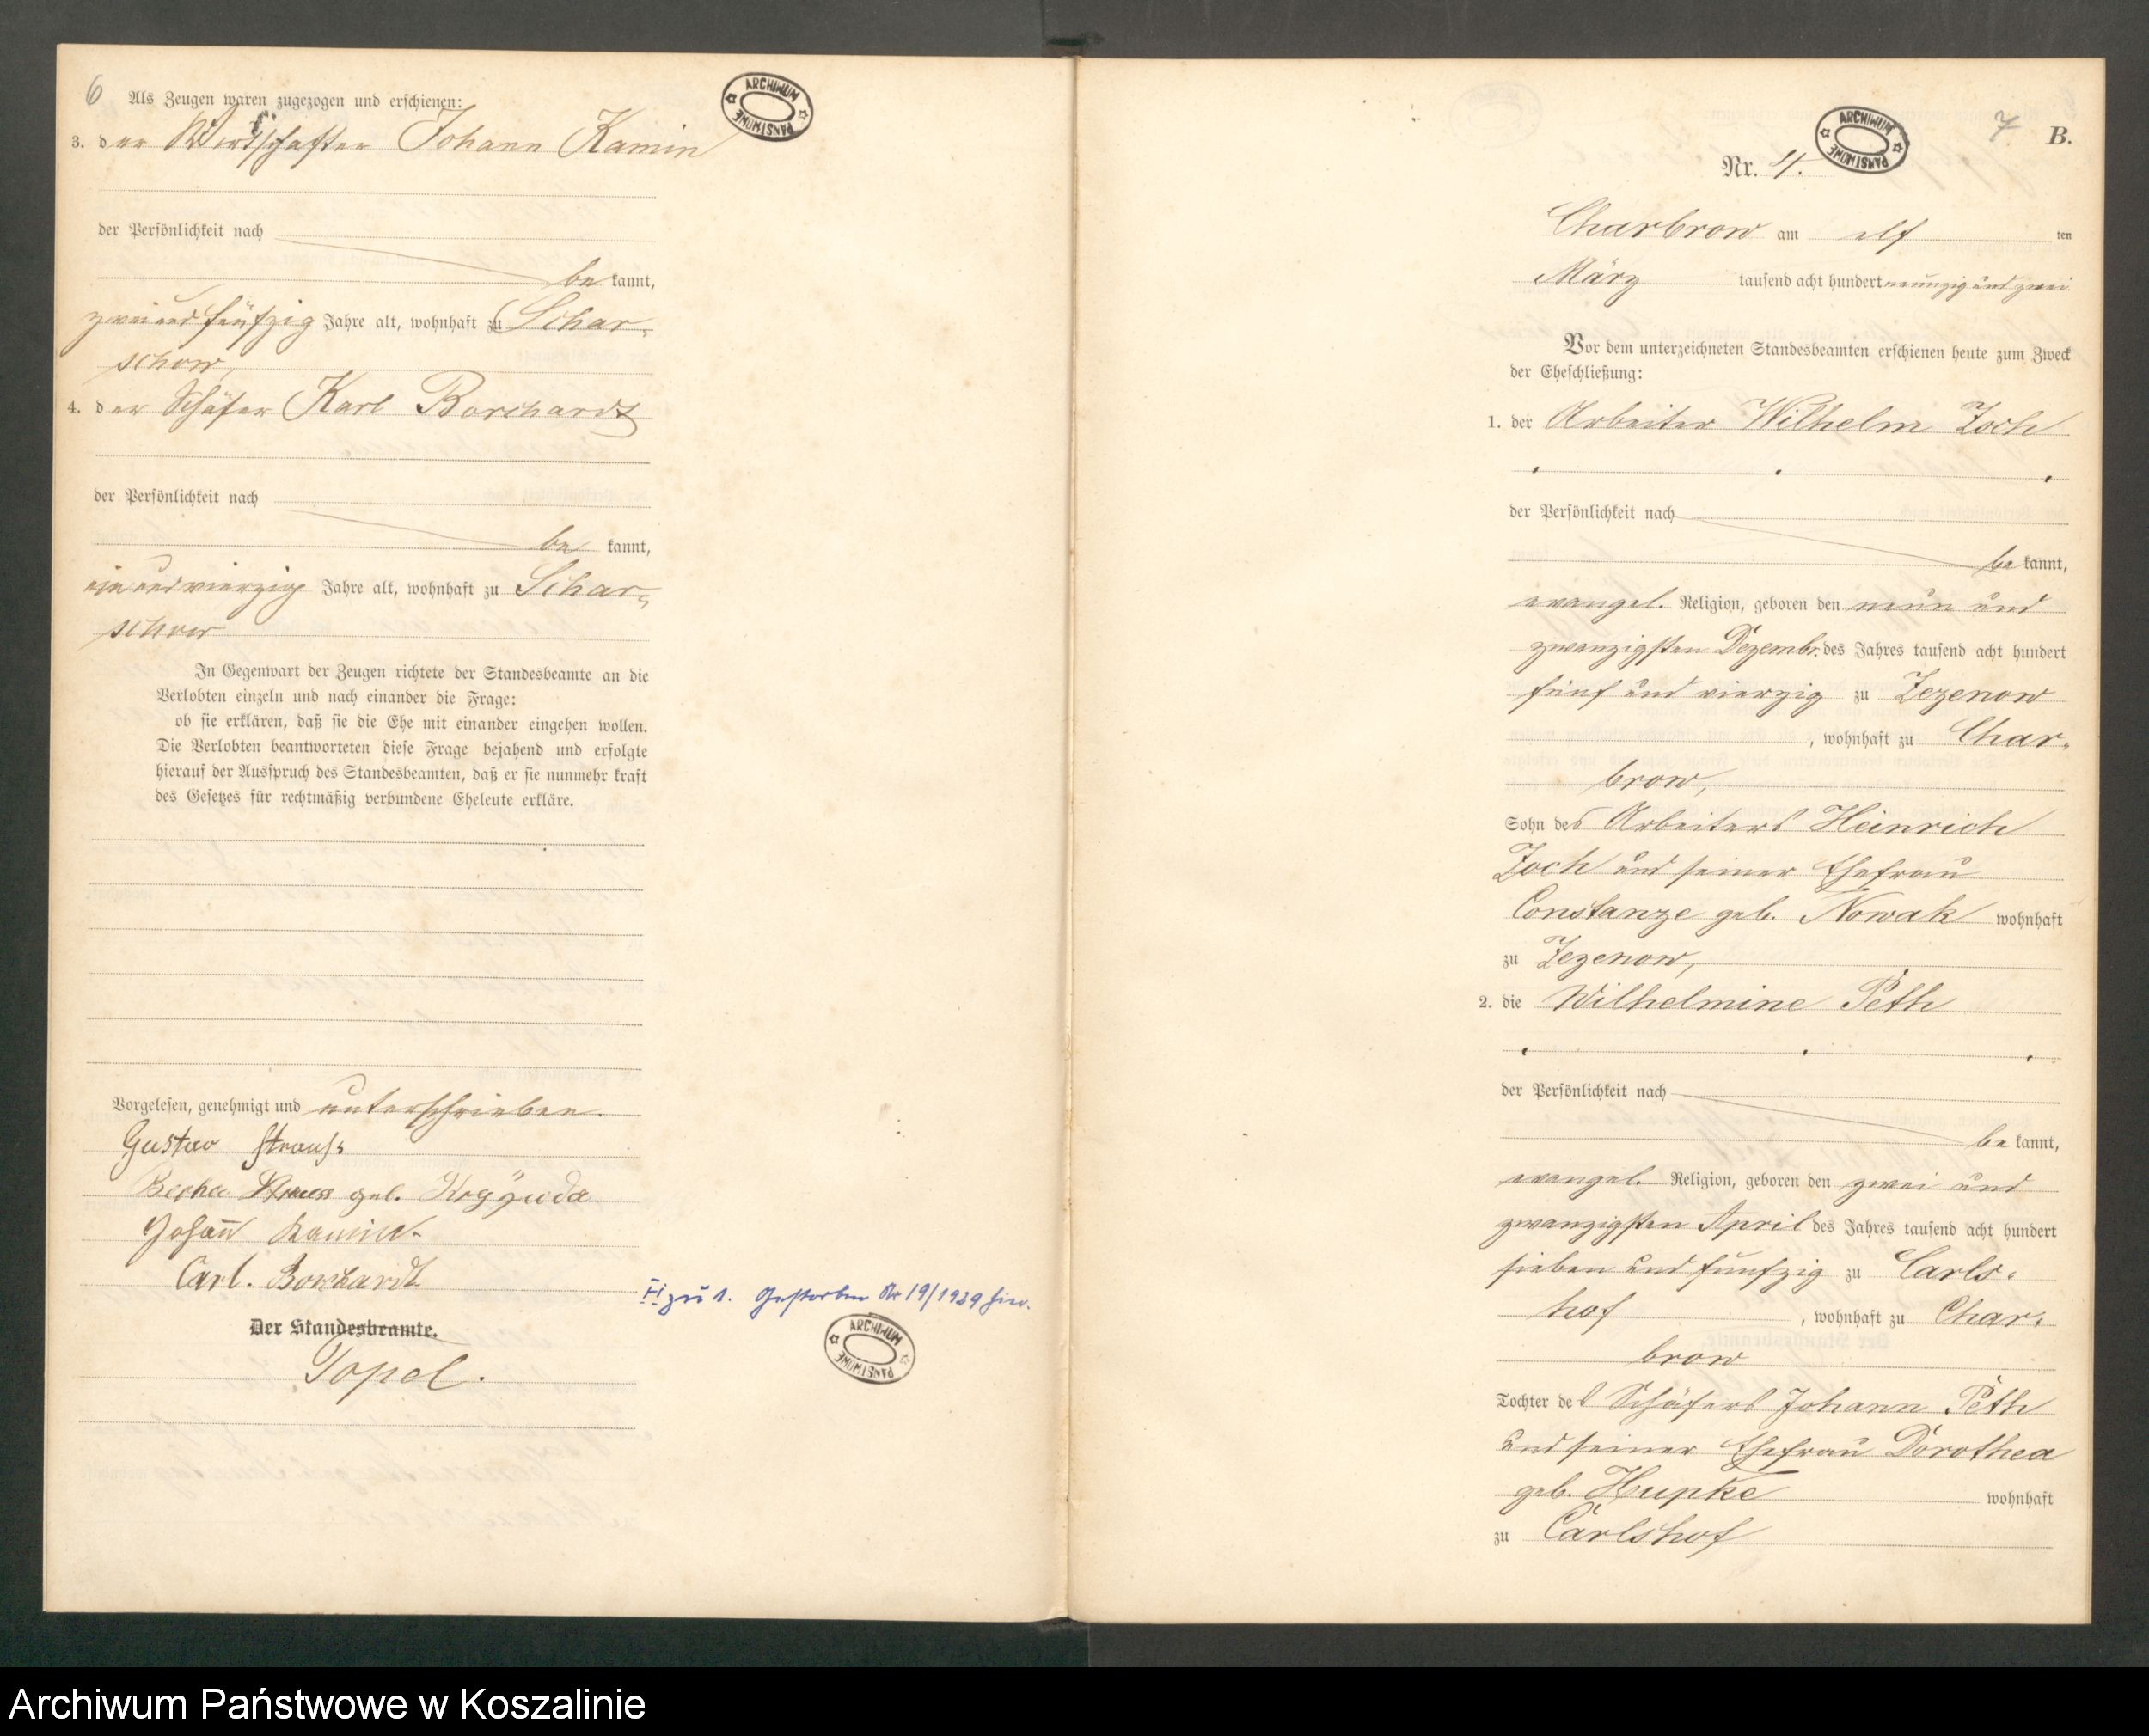 6
Als Zeugen waren zugezogen und erschienen:
ARCHIWUM PAŃSTWOWE
3. der Wirtschafter Johann Kamin
der Persönlichkeit nach
be kannt,
zwei und fünfzig Jahre alt, wohnhaft zu Schar-
schow,
4. der Schäfer Karl Borchardt
der Persönlichkeit nach
be kannt,
ein und vierzig Jahre alt, wohnhaft zu Schar-
schow
In Gegenwart der Zeugen richtete der Standesbeamte an die
Verlobten einzeln und nach einander die Frage:
ob sie erklären, daß sie die Ehe mit einander eingehen wollen.
Die Verlobten beantworteten diese Frage bejahend und erfolgte
hierauf der Ausspruch des Standesbeamten, daß er sie nunmehr kraft
des Gesetzes für rechtmäßig verbundene Eheleute erkläre.
Vorgelesen, genehmigt und unterschrieben.
Gustav Strauss
Strauss geb.
Johann Kamin.
Carl. Borchardt
II zu 1. Gestorben Nr 19/1929 hier.
Der Standesbeamte.
ARCHIWUM PAŃSTWOWE
Topel.
7 B.
ARCHIWUM PAŃSTWOWE
Nr. 4.
Charbrow am elf ten
März tausend acht hundert neunzig und zwei
Vor dem unterzeichneten Standesbeamten erschienen heute zum Zweck
der Eheschließung:
1. der Arbeiter Wilhelm Zoch
der Persönlichkeit nach
be kannt,
evangel. Religion, geboren den neun und
zwanzigsten Dezembr. des Jahres tausend acht hundert
fünf und vierzig zu Zezenow
, wohnhaft zu Char-
brow,
Sohn des Arbeiters Heinrich
Zoch und seiner Ehefrau
Constanze geb. Nowak wohnhaft
zu Zezenow,
2. die Wilhelmine Peth
der Persönlichkeit nach
be kannt,
evangel. Religion, geboren den zwei und
zwanzigsten April des Jahres tausend acht hundert
sieben und fünfzig zu Carls-
hof , wohnhaft zu Char-
brow
Tochter des Schäfers Johann Peth
und seiner Ehefrau Dorothea
geb. Hupke wohnhaft
zu Carlshof
Archiwum Państwowe w Koszalinie